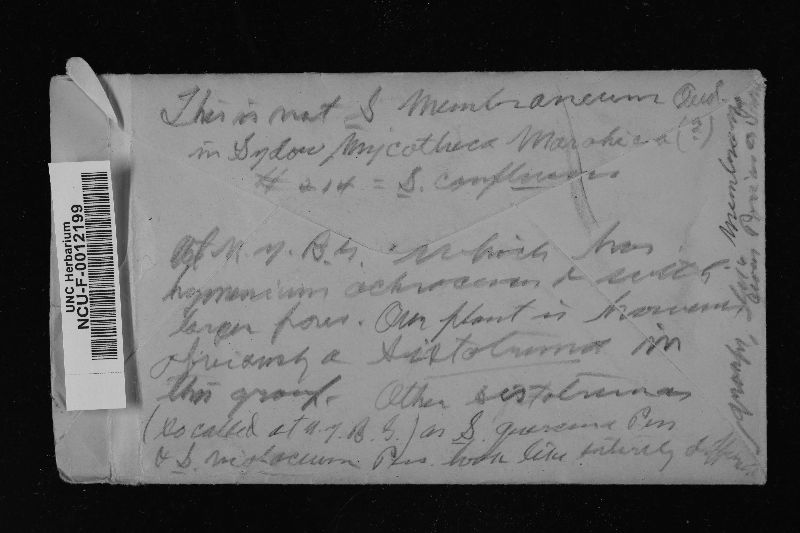 UNC Herbarium
NCU-F-0012199
This is not S Membraneum Oud.
in Sydow Mycotheca Marchica (?)
# 214 = S. confluens
of N. Y. B. G. which has
hymenium ochraceous & with
larger pores. Our plant is
obviously a Sistotrema in
this group. Other Sistotremas
(so called at N. Y. B. G.) as S. quercina Pers
& S. violaceum Pers. look like entirely different
groups,